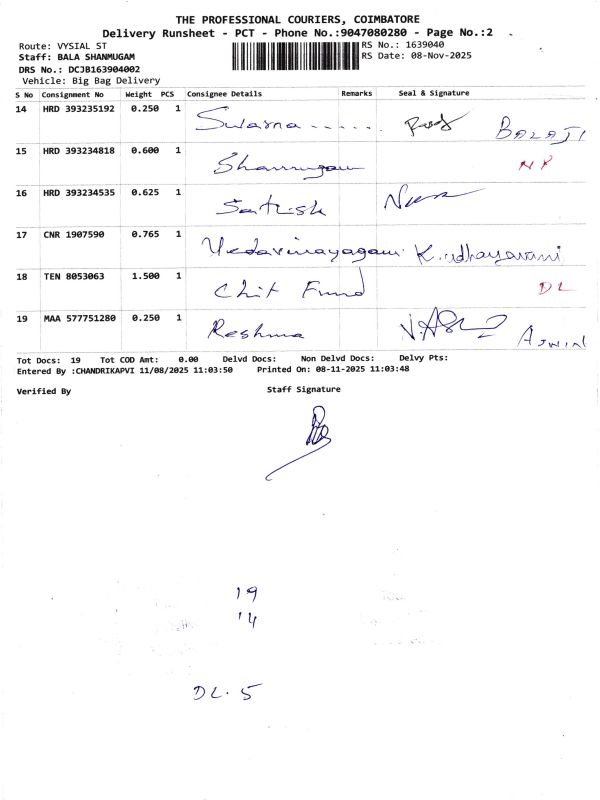 THE PROFESSIONAL COURIERS, COIMBATORE
Delivery Runsheet - PCT - Phone No.:9047080280 - Page No.:2
Route: VYSIAL ST RS No.: 1639040
Staff: BALA SHANMUGAM RS Date: 08-Nov-2025
DRS No.: DCJB163904002
Vehicle: Big Bag Delivery
S No Consignment No Weight PCS Consignee Details Remarks Seal & Signature
14 HRD 393235192 0.250 1 Swarna ...... BALAJI
15 HRD 393234818 0.600 1 Shanmugam
16 HRD 393234535 0.625 1 Satish
17 CNR 1907590 0.765 1 Vedavinayagam K.udhayavani
18 TEN 8053063 1.500 1 Chit Fund DL
19 MAA 577751280 0.250 1 Reshma AJWIN
Tot Docs: 19 Tot COD Amt: 0.00 Delvd Docs: Non Delvd Docs: Delvy Pts:
Entered By :CHANDRIKAPVI 11/08/2025 11:03:50 Printed On: 08-11-2025 11:03:48
Verified By Staff Signature
19
14
DL. 5